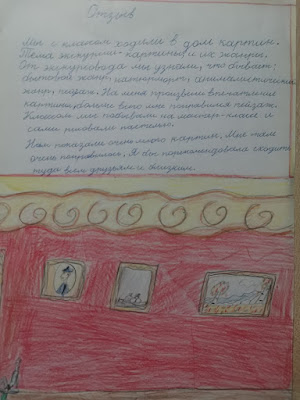 Отзыв
Мы с классом ходили в дом картин.
Тема экскурсии - картины и их жанры.
От экскурсовода мы узнали, что бывает:
бытовой жанр, натюрморт, анималистический
жанр, пейзаж. На меня произвели впечатление
картины, больше всего мне понравился пейзаж.
Классом мы побывали на мастер-классе и
сами рисовали пастелью.
Нам показали очень много картин. Мне там
очень понравилось. Я бы порекомендовала сходить
туда всем друзьям и близким.